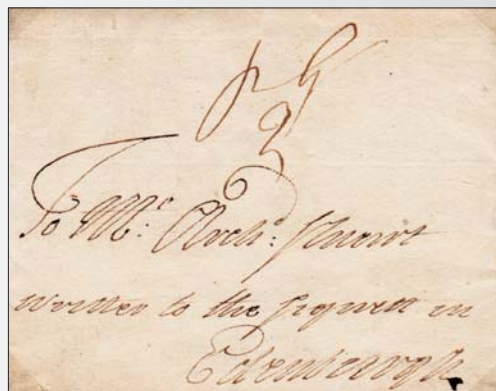 3
To Mr. Archd: Stuart
writter to the signett in
Edenburgh